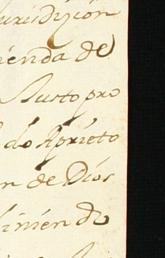 jurisdizion
ienda de
Susto pro
do Aprieto
n de Dios
iniendo